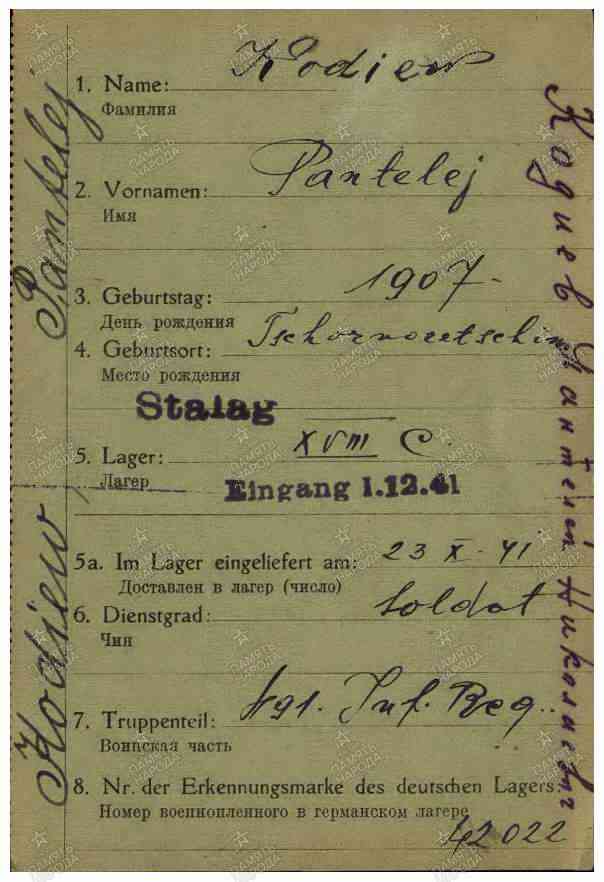 Kodiew
1. Name:
Фамилия
Pantelej
2. Vornamen:
Имя
1907
3. Geburtstag:
День рождения
4. Geburtsort:
Место рождения
Stalag
XVIII C.
5. Lager:
Лагер
Eingang 1.12.41
5a. Im Lager eingeliefert am: 23 X. 41
Доставлен в лагер (число)
6. Dienstgrad: Soldat
Чин
7. Truppenteil: 491. Inf. Reg.
Воинская часть
8. Nr. der Erkennungsmarke des deutschen Lagers:
Номер военнопленного в германском лагере
42022
Kodiew Pantelej
Кодиев Пантелей Николаевич
ПАМЯТЬ НАРОДА